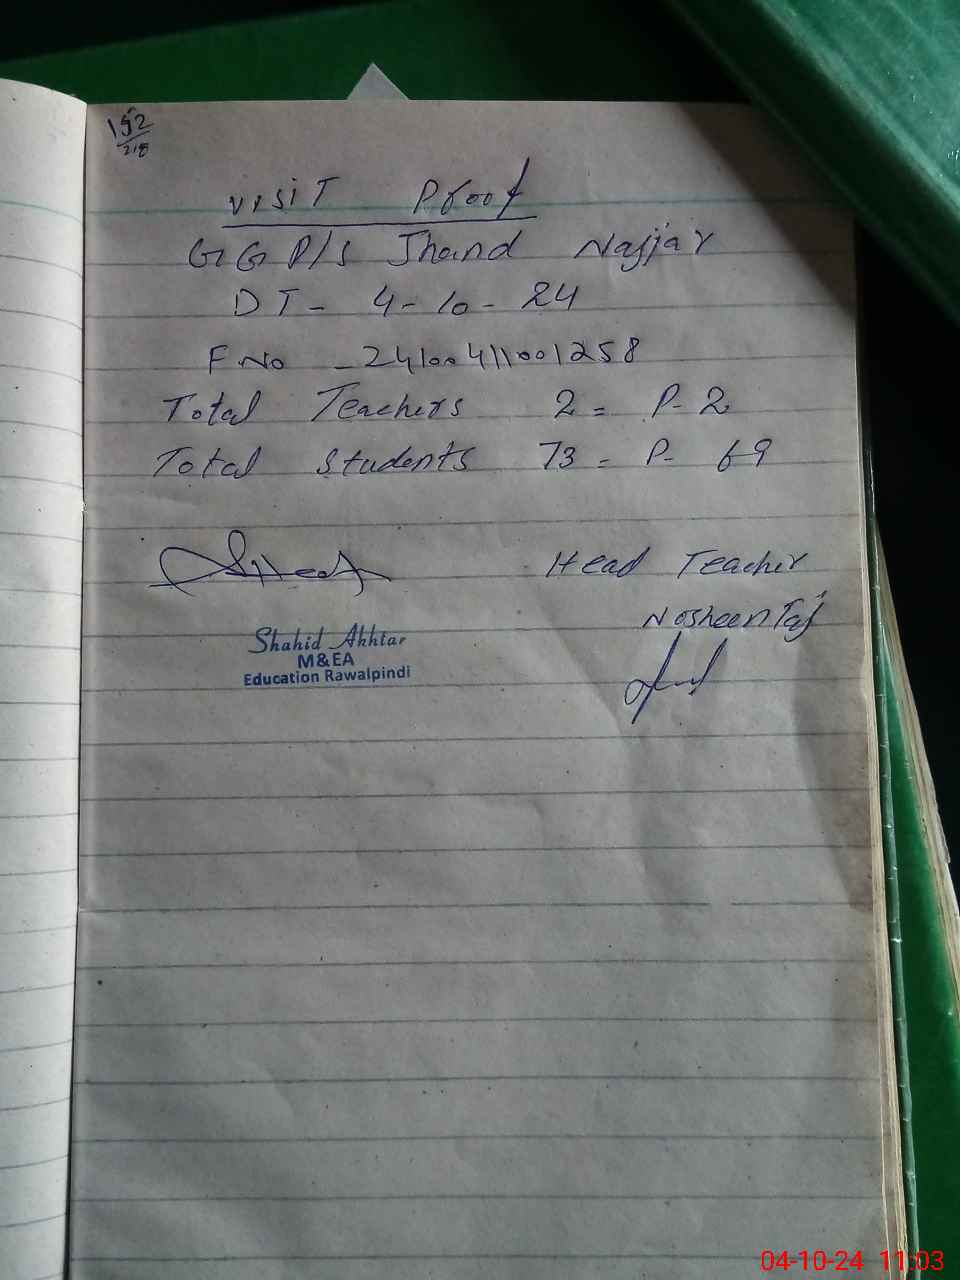 152
218
visit Proof
GGP/S Jhand Najjar
DT - 4-10-24
F No - 241004110012 58
Total Teachers 2 = P-2
Total students 73 = P- 69
Head Teacher
Nosheen Taj
Shahid Akhtar
M&EA
Education Rawalpindi
04-10-24 11:03